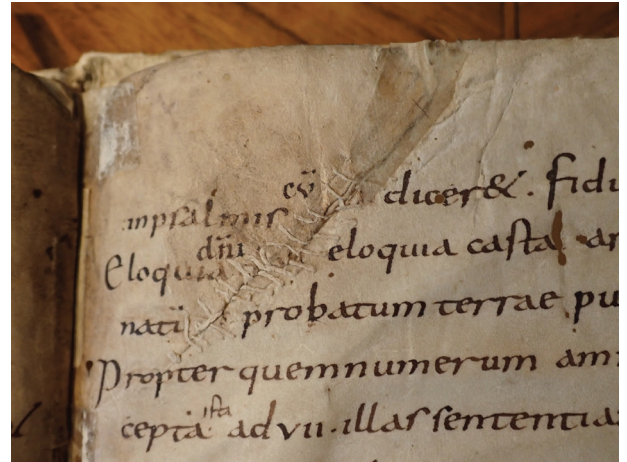 in psalmis cū diceret. Fidu
Eloquia dn̄i eloquia casta ar
natū probatum terrae pu
Propter quem numerum am
cepta ista ad vii. illas sententia